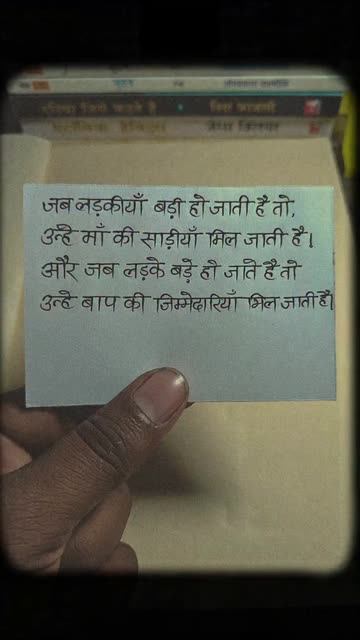 जब लड़कीयाँ बड़ी हो जाती है तो,
उन्हे माँ की साड़ीयाँ मिल जाती है।
और जब लड़के बड़े हो जाते है तो
उन्हे बाप की जिम्मेदारियाँ मिल जाती है।